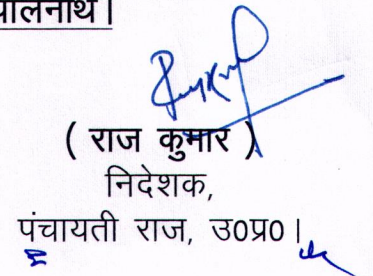 पालनार्थ।
( राज कुमार )
निदेशक,
पंचायती राज, उ०प्र०।